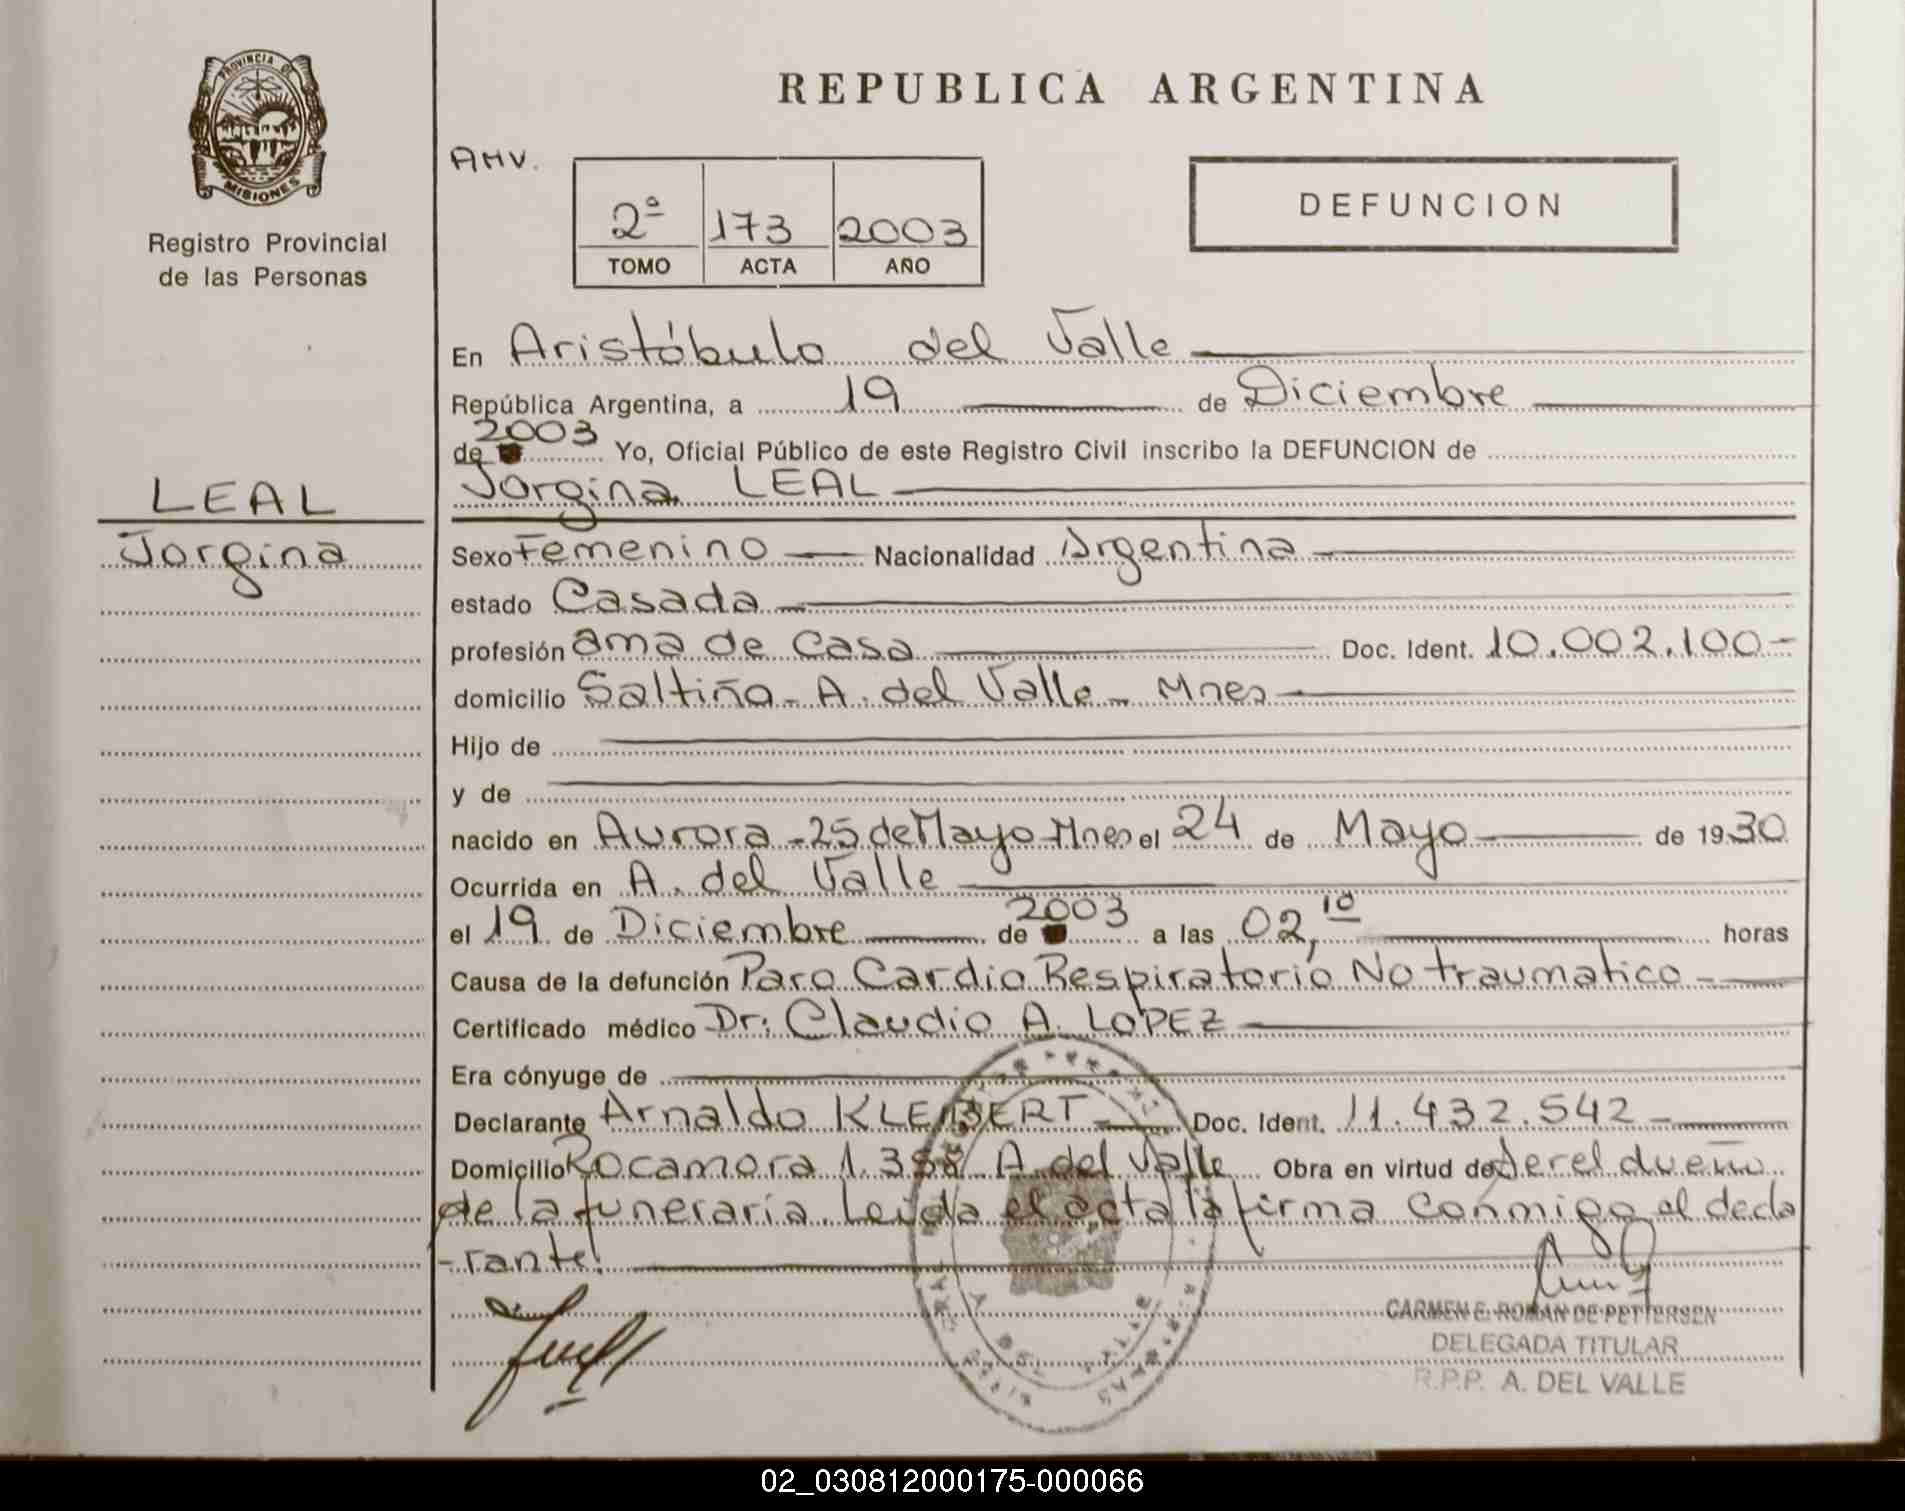 PROVINCIA DE
MISIONES
Registro Provincial
de las Personas
REPUBLICA ARGENTINA
AHV.
2º 173 2003
TOMO ACTA AÑO
DEFUNCION
En Aristóbulo del Valle
República Argentina, a 19 de Diciembre
de 2003 Yo, Oficial Público de este Registro Civil inscribo la DEFUNCION de
LEAL
Jorgina LEAL
Jorgina
Sexo Femenino Nacionalidad Argentina
estado Casada
profesión ama de casa Doc. Ident. 10.002.100-
domicilio Saltiño - A. del Valle - Mnes
Hijo de
y de
nacido en Aurora - 25 de Mayo - Mnes el 24 de Mayo de 1930
Ocurrida en A. del Valle
el 19 de Diciembre de 2003 a las 02,10 horas
Causa de la defunción Paro Cardio Respiratorio No traumatico -
Certificado médico Dr: Claudio A. LOPEZ
Era cónyuge de
Declarante Arnaldo KLEIBERT Doc. Ident. 11.432.542 -
Domicilio Rocamora A. del Valle Obra en virtud de ser el dueño
de la funeraria. Leida el acta la firma conmigo el decla
-rante.
CARMEN E. ROMAN DE PETTERSEN
DELEGADA TITULAR
R.P.P. A. DEL VALLE
02_030812000175-000066